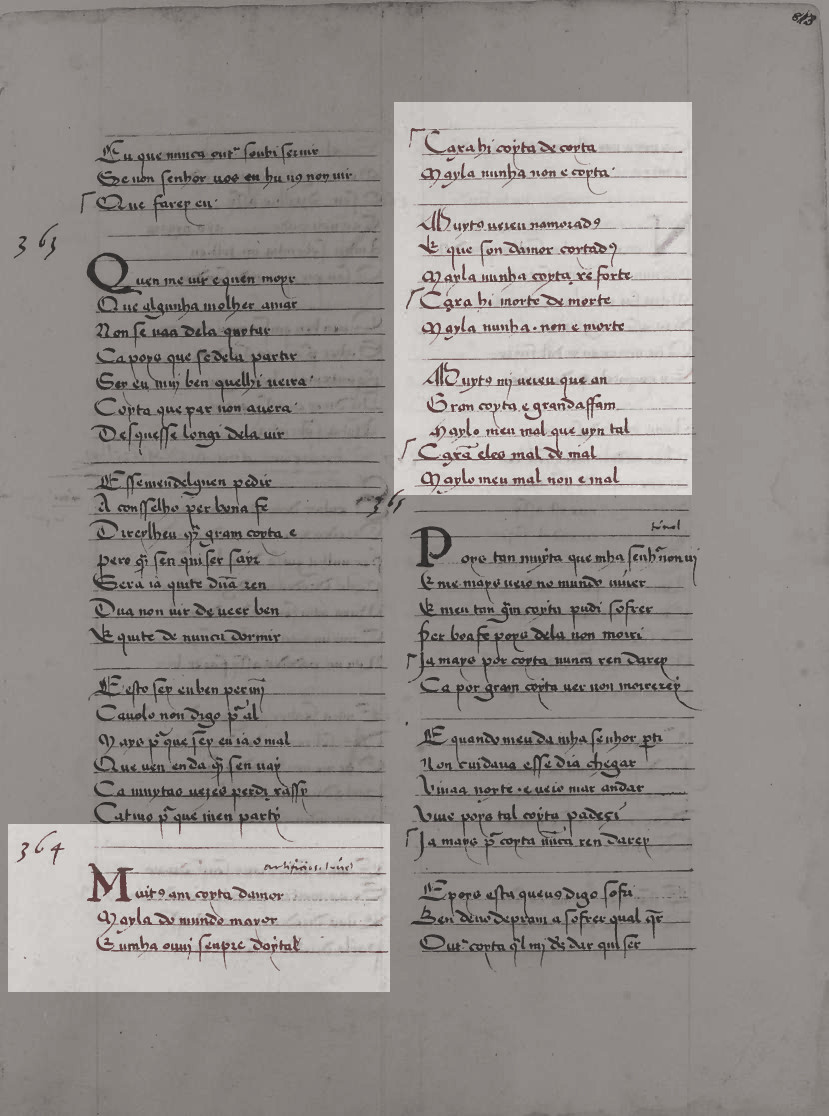 Eu que nunca out' soubi seruir
Se non senhor uos en hu u9 non uir
Que farey eu
363
Quen me uir e quen moyr
Que algunha molher amar
Non se uaa dela quytar
Ca poys que se dela partir
Ser eu muj ben quelhi ueira
Coyta que par non auera
Desquesse longi dela uir
Essemendelguen pedir
A consselho per bona fe
Direylheu q̄ gram coyta e
pero q̄ sen qui ser sayr
Sera ia quite dūa ren
Dua non uir de ueer ben
E quite de nunca dormir
E esto sey eu ben per mj
Ca uolo non digo p' al
Mays p' que sey eu ia o mal
Que uen enda q̄ sen uay
Ca muytao uezes perdi assy
Catiuo p' que men party
364
Muit9 am coyta damor
Mayla do mundo mayor
E umha ouuj senpre doytal
Cara hi coyta de coyta
Mayla minha non e coyta
Muyt9 ueieu namorad9
E que son damor coytad9
Mayla minha coyta e forte
Cara hi morte de morte
Mayla minha . non e morte
Muyt9 mj ueieu que an
Gran coyta e grandaffam
Maylo meu mal que uyn tal
Cara eles mal de mal
Maylo meu mal non e mal
365
tornel
Poys tan muyta que mha senhor non uj
E me mays ueio no mundo uiuer
E meu tan gm coyta pudi sofrer
Per boa fe poys dela non moiri
Ja mays por coyta nunca ren darey
Ca por gram coyta uer non moirerey
E quando meu da mha senhor parti
Non cuidaua esse dia chegar
Viuaa norte . e ueio mar andar
Viue poys tal coyta padeci
Ja mays p' coyta nūca ren darey
E poys esta queu9 digo sofri
Ben deuo de pram a sofrer qual q̄r
Out' coyta q̄l mj d's dar quiser